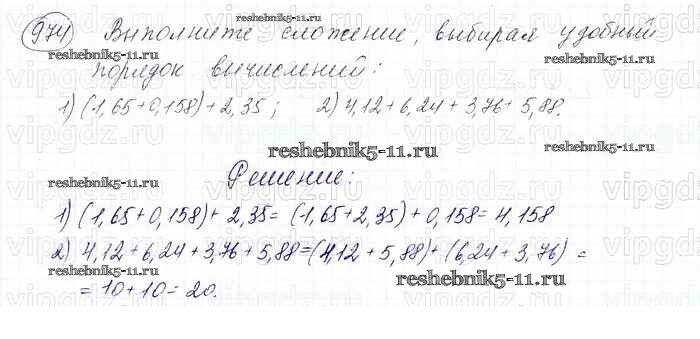 974 Выполните сложение, выбирая удобный
порядок вычислений:
1) (1,65+0,158)+2,35; 2) 4,12+6,24+3,76+5,88.
Решение:
1) (1,65+0,158)+2,35=(1,65+2,35)+0,158=4,158
2) 4,12+6,24+3,76+5,88=(4,12+5,88)+(6,24+3,76)=
=10+10=20.
reshebnik5-11.ru
reshebnik5-11.ru
reshebnik5-11.ru
reshebnik5-11.ru
reshebnik5-11.ru
reshebnik5-11.ru
reshebnik5-11.ru
reshebnik5-11.ru
vipgdz.ru